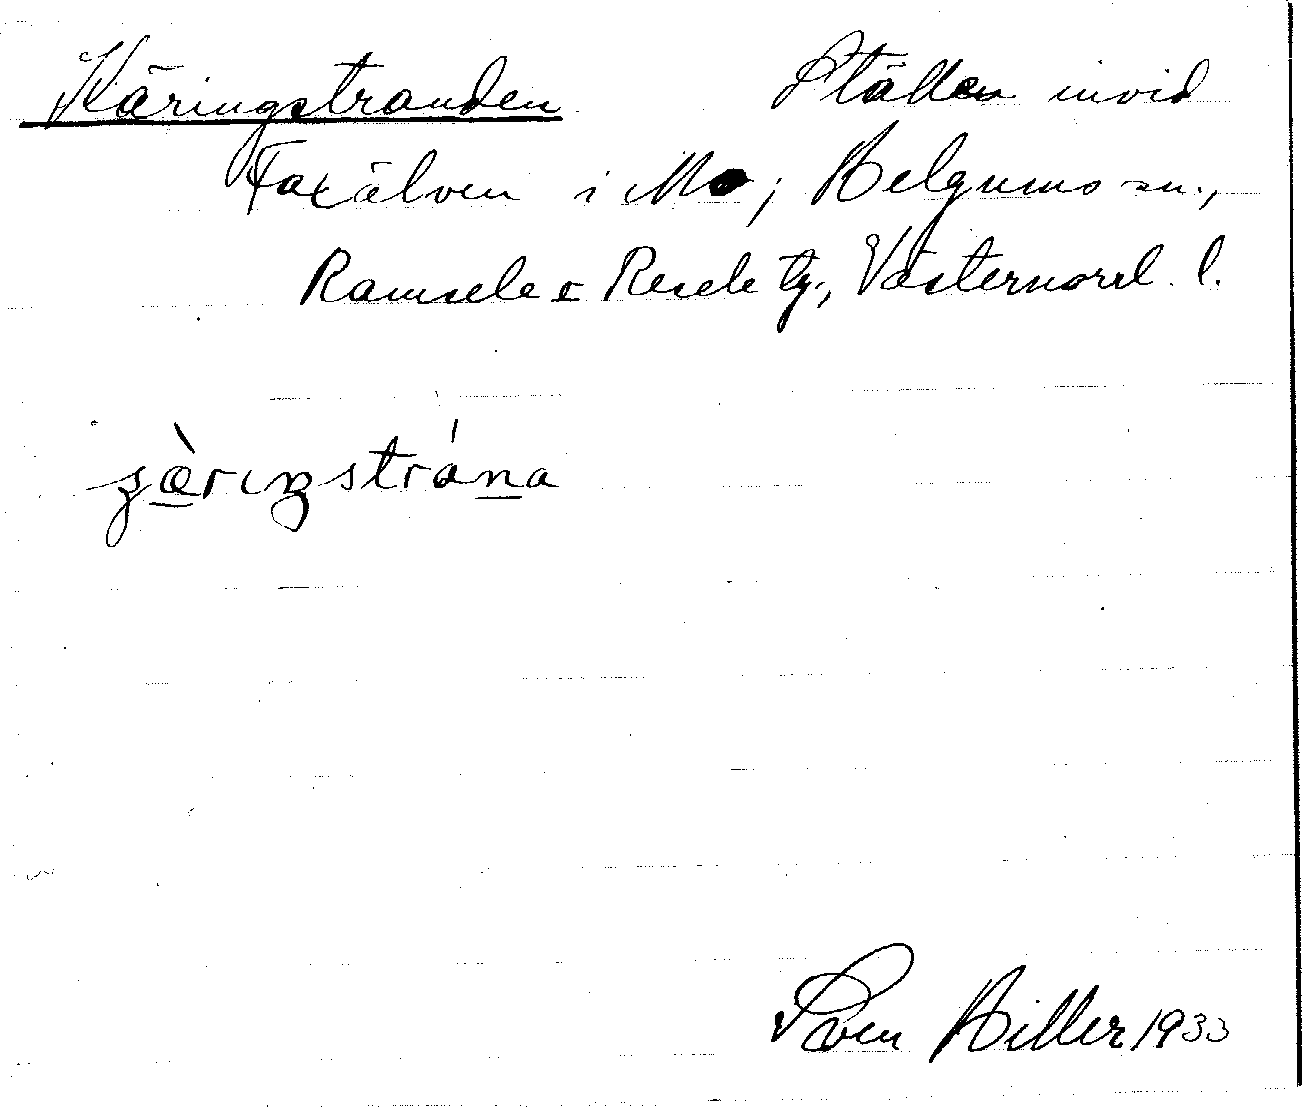 Käringstranden Ställen invid
Faxälven i Mo; Helgums sn.,
Ramsele o Resele tg., Västernorrl. l.
Sven Hiller 1933